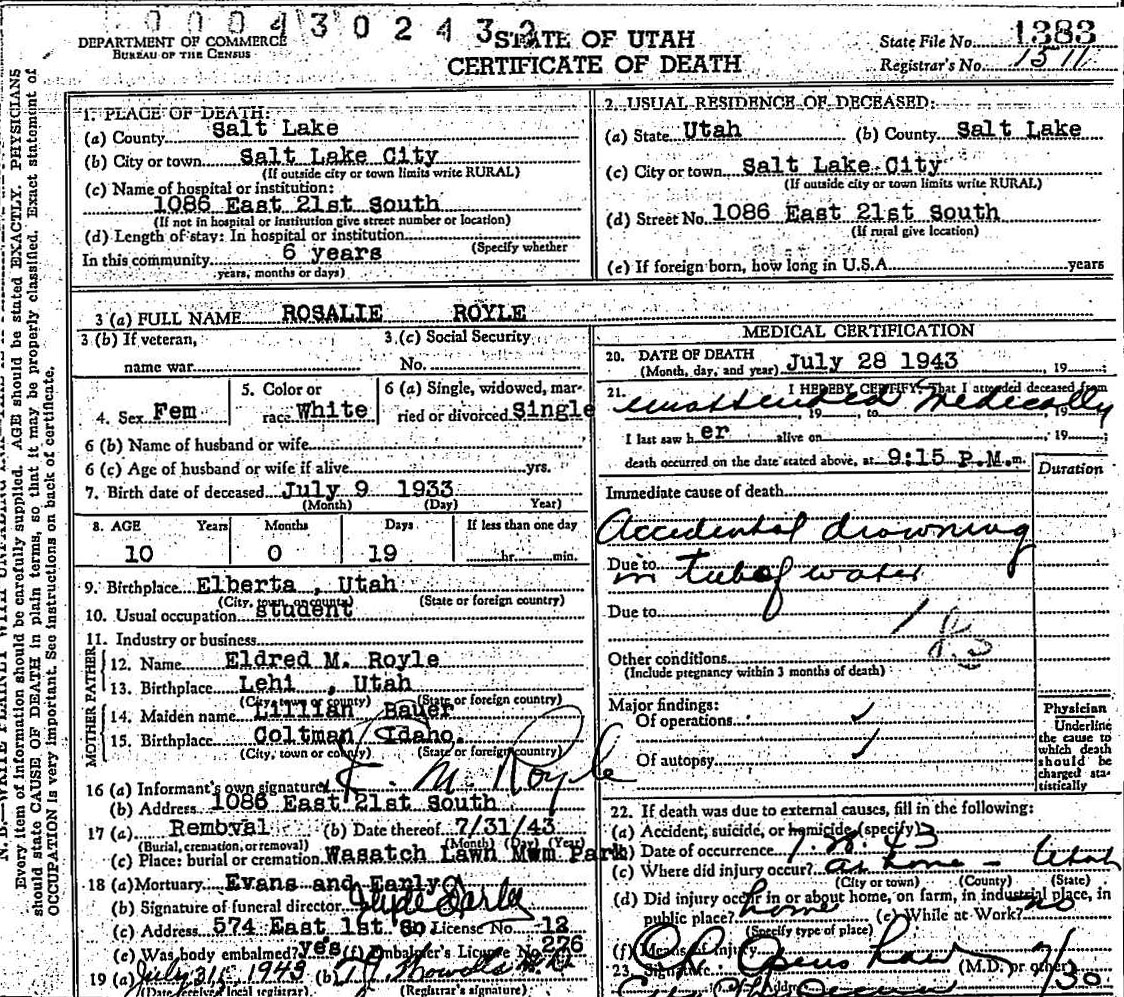 0 0 0 4 3 0 2 4 3 3
DEPARTMENT OF COMMERCE
BUREAU OF THE CENSUS
STATE OF UTAH
CERTIFICATE OF DEATH
State File No. 1383
Registrar's No. 1511
Every item of information should be carefully supplied. AGE should be stated EXACTLY. PHYSICIANS
should state CAUSE OF DEATH in plain terms, so that it may be properly classified. Exact statement of
OCCUPATION is very important. See instructions on back of certificate.
1. PLACE OF DEATH:
(a) County Salt Lake
(b) City or town Salt Lake City
(If outside city or town limits write RURAL)
(c) Name of hospital or institution:
1086 East 21st South
(If not in hospital or institution give street number or location)
(d) Length of stay: In hospital or institution
(Specify whether
In this community 6 years
years, months or days)
2. USUAL RESIDENCE OF DECEASED:
(a) State Utah (b) County Salt Lake
(c) City or town Salt Lake City
(If outside city or town limits write RURAL)
(d) Street No. 1086 East 21st South
(If rural give location)
(e) If foreign born, how long in U.S.A. years
3 (a) FULL NAME ROSALIE ROYLE
3 (b) If veteran,
name war
3 (c) Social Security
No.
4. Sex Fem
5. Color or
race White
6 (a) Single, widowed, mar-
ried or divorced Single
6 (b) Name of husband or wife
6 (c) Age of husband or wife if alive yrs.
7. Birth date of deceased July 9 1933
(Month) (Day) Year)
8. AGE Years Months Days If less than one day
10 0 19 hr. min.
9. Birthplace Elberta , Utah
(City, town, or county) (State or foreign country)
10. Usual occupation student
11. Industry or business
FATHER
12. Name Eldred M. Royle
13. Birthplace Lehi , Utah
(City, town or county) (State or foreign country)
MOTHER
14. Maiden name Lillian Bauer
15. Birthplace Coltman Idaho.
(City, town or county) (State or foreign country)
16 (a) Informant's own signature M. Royle
(b) Address 1086 East 21st South
17 (a) Removal (b) Date thereof 7/31/43
(Burial, cremation, or removal) (Month) (Day) (Year)
(c) Place: burial or cremation Wasatch Lawn Mem Park
18 (a) Mortuary Evans and Early
(b) Signature of funeral director Clyde Early
(c) Address 574 East 1st So. License No. 12
(e) Was body embalmed? yes (f) Embalmer's License No. 276
19 (a) July 31, 1943 (b)
(Date received local registrar) (Registrar's signature)
MEDICAL CERTIFICATION
20. DATE OF DEATH
(Month, day, and year) July 28 1943 , 19 ;
21. I HEREBY CERTIFY, That I attended deceased from
unattended medically
, 19 , to , 19
I last saw her alive on , 19 ;
death occurred on the date stated above, at 9:15 P.M. m.
Duration
Immediate cause of death
Accidental drowning
Due to
in tub of water
Due to
Other conditions
(Include pregnancy within 3 months of death)
Major findings:
Of operations ✓
Of autopsy ✓
Physician
Underline
the cause to
which death
should be
charged sta-
tistically
22. If death was due to external causes, fill in the following:
(a) Accident, suicide, or homicide (specify)
(b) Date of occurrence 7.28.43
(c) Where did injury occur? at home - Utah
(City or town) (County) (State)
(d) Did injury occur in or about home, on farm, in industrial place, in
public place? home (e) While at Work? no
(Specify type of place)
(f) Means of Injury
23. Signature (M.D. or other) 7/30
Address